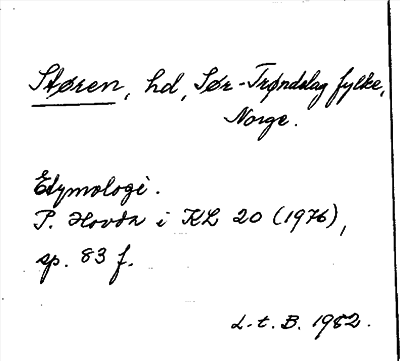 Støren, hd, Sør-Trøndelag fylke,
Norge.
Etymologi.
P. Hovda i KL 20 (1976),
sp. 83 f.
L.t.B. 1982.